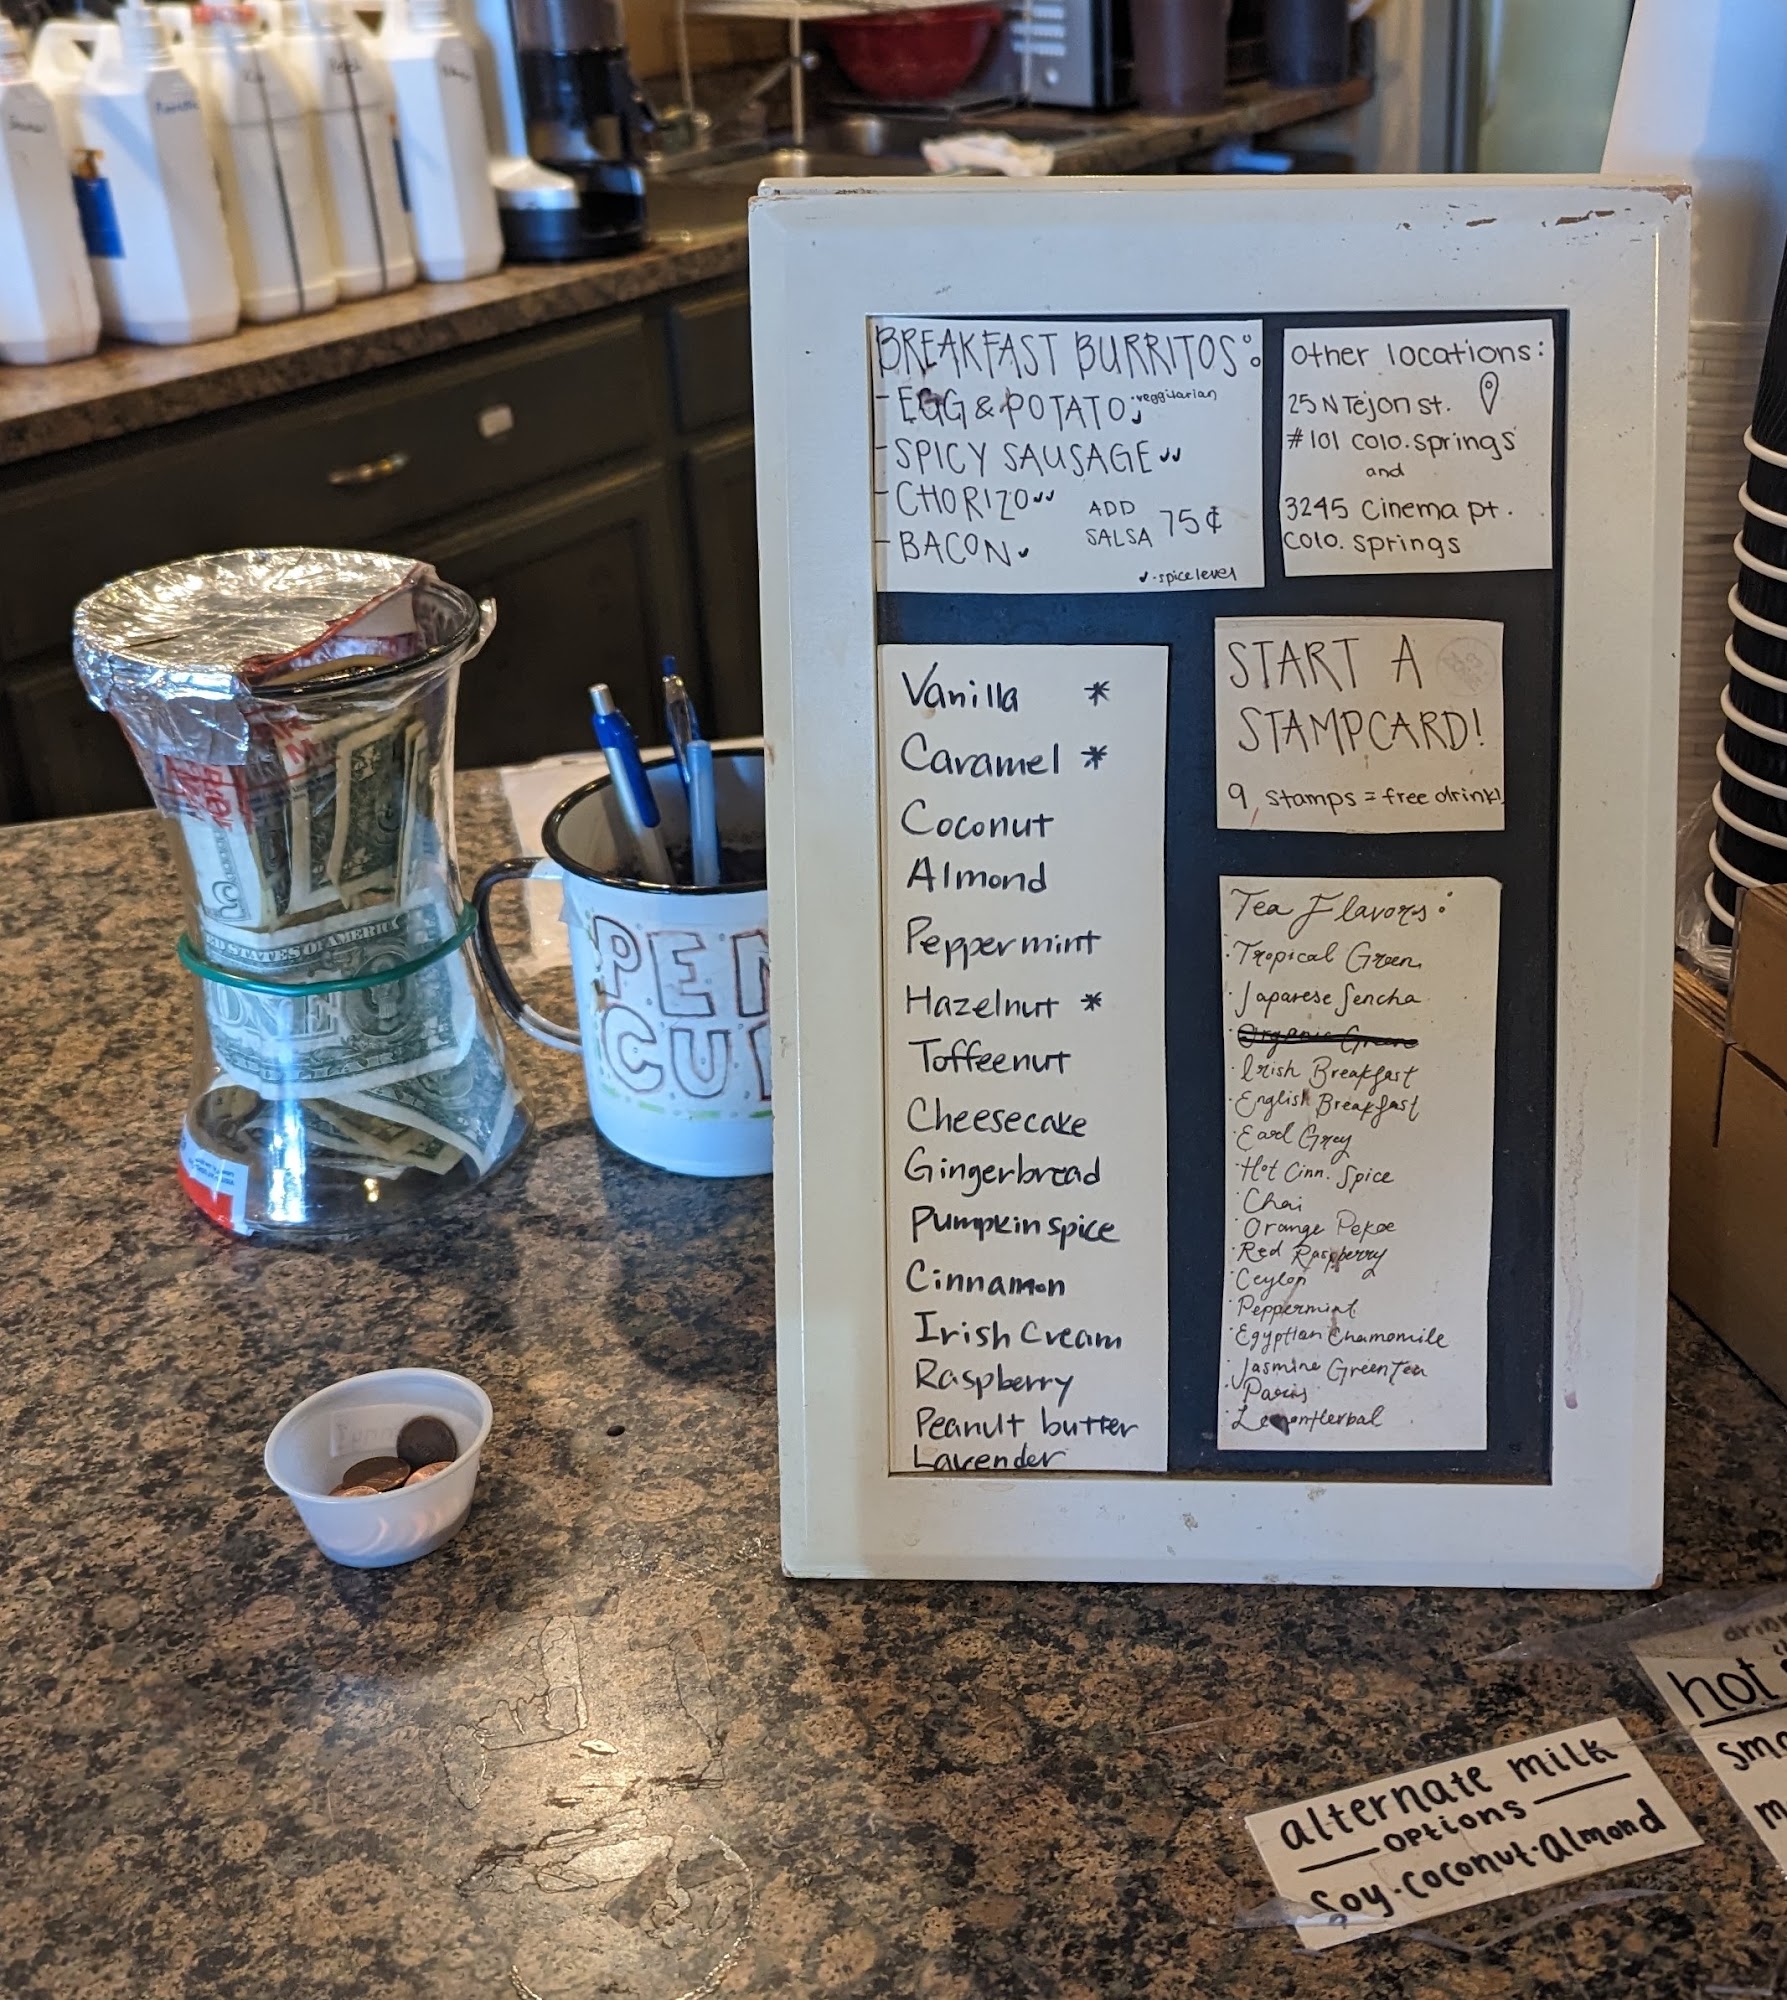 BREAKFAST BURRITOS:
- EGG & POTATO ✓ veggitarian
- SPICY SAUSAGE ✓✓
- CHORIZO ✓✓
- BACON ✓
ADD
SALSA 75¢
✓ - spice level
other locations:
25 N Tejon st.
#101 colo. springs
and
3245 Cinema pt.
colo. springs
START A
STAMPCARD!
9 stamps = free drink!
Vanilla *
Caramel *
Coconut
Almond
Peppermint
Hazelnut *
Toffeenut
Cheesecake
Gingerbread
Pumpkin spice
Cinnamon
Irish Cream
Raspberry
Peanut butter
Lavender
Tea Flavors:
· Tropical Green
· Japanese Sencha
· Organic Green
· Irish Breakfast
· English Breakfast
· Earl Grey
· Hot Cinn. Spice
· Chai
· Orange Pekoe
· Red Raspberry
· Ceylon
· Peppermint
· Egyptian Chamomile
· Jasmine Green Tea
· Paris
· Lemon Herbal
PEN
CU
STATES OF AMERICA
ONE
alternate milk
options
Soy · Coconut · Almond
hot